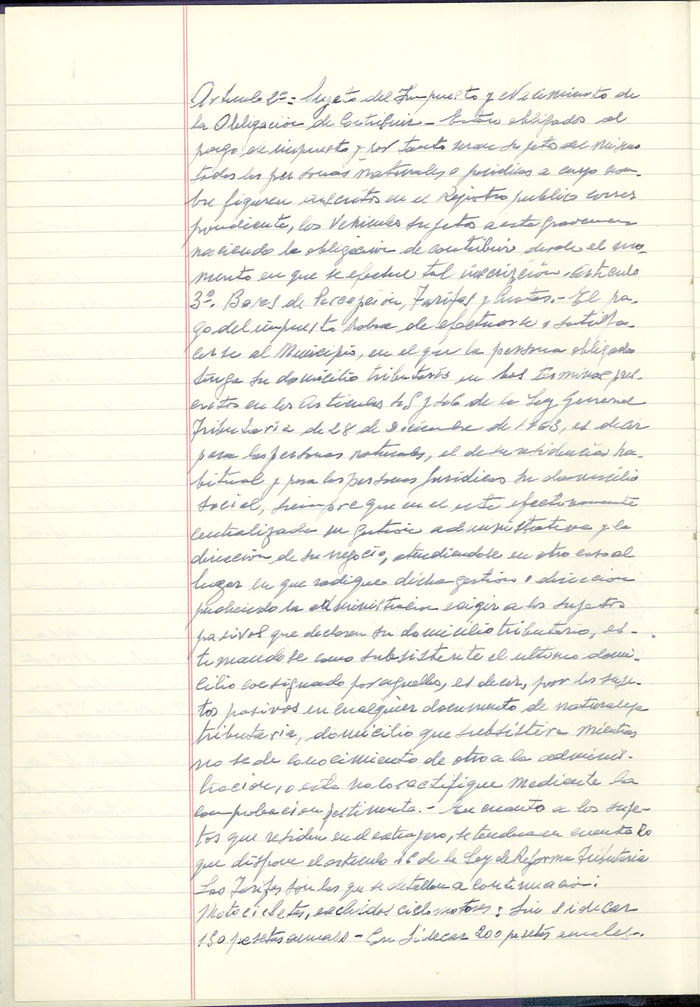 Artículo 2º = Sujeto del Impuesto y Nacimiento de
la Obligación de Contribuir - Estan obligados al
pago de impuesto y por tanto seran sujetos del mismo
todas las personas naturales o juridicas a cuyo nom-
bre figuren inscritos en el Registro publico corres
pondiente, los Vehiculos sujetos a este gravamen
naciendo la obligacion de contribuir desde el mo-
mento en que se efectue tal inscripción. Artículo
3º. Bases de Percepción, Tarifas y Cuotas.- El pa-
go del impuesto habra de efectuarse o satisfa-
cerse al Municipio, en el que la persona obligada
tenga su domicilio tributario en los terminos pres-
critos en los Articulos 45 y 46 de la Ley General
Tributaria de 28 de Diciembre de 1963, es decir
para las personas naturales, el de su residencia ha-
bitual y para las personas Juridicas su domicilio
social, siempre que en el este efectivamente
centralizada su gestion administrativa y la
direccion de su negocio, atendiendose en otro caso al
lugar en que radique dicha gestion o direccion
pudiendo la administracion exigir a los sujetos
pasivos que declaren su domicilio tributario, es-
timandose como subsistente el ultimo domi-
cilio consignado por aquellos, es decir, por los suje-
tos pasivos en cualquier documento de naturaleza
tributaria, domicilio que subsistira mientras
no se de conocimiento de otro a la adminis-
tracion, o esta no lo rectifique mediante la
comprobacion pertinente. - En cuanto a los suje-
tos que residen en el extrajero, se tendra en cuenta lo
que dispone el articulo 16 de la Ley de Reforma Tributaria
Las Tarifas son las que se detallan a continuacion:
Motocicletas, excluidos ciclomotores; Sin sidecar
150 pesetas anuales - Con Sidecar 200 pesetas anuales.